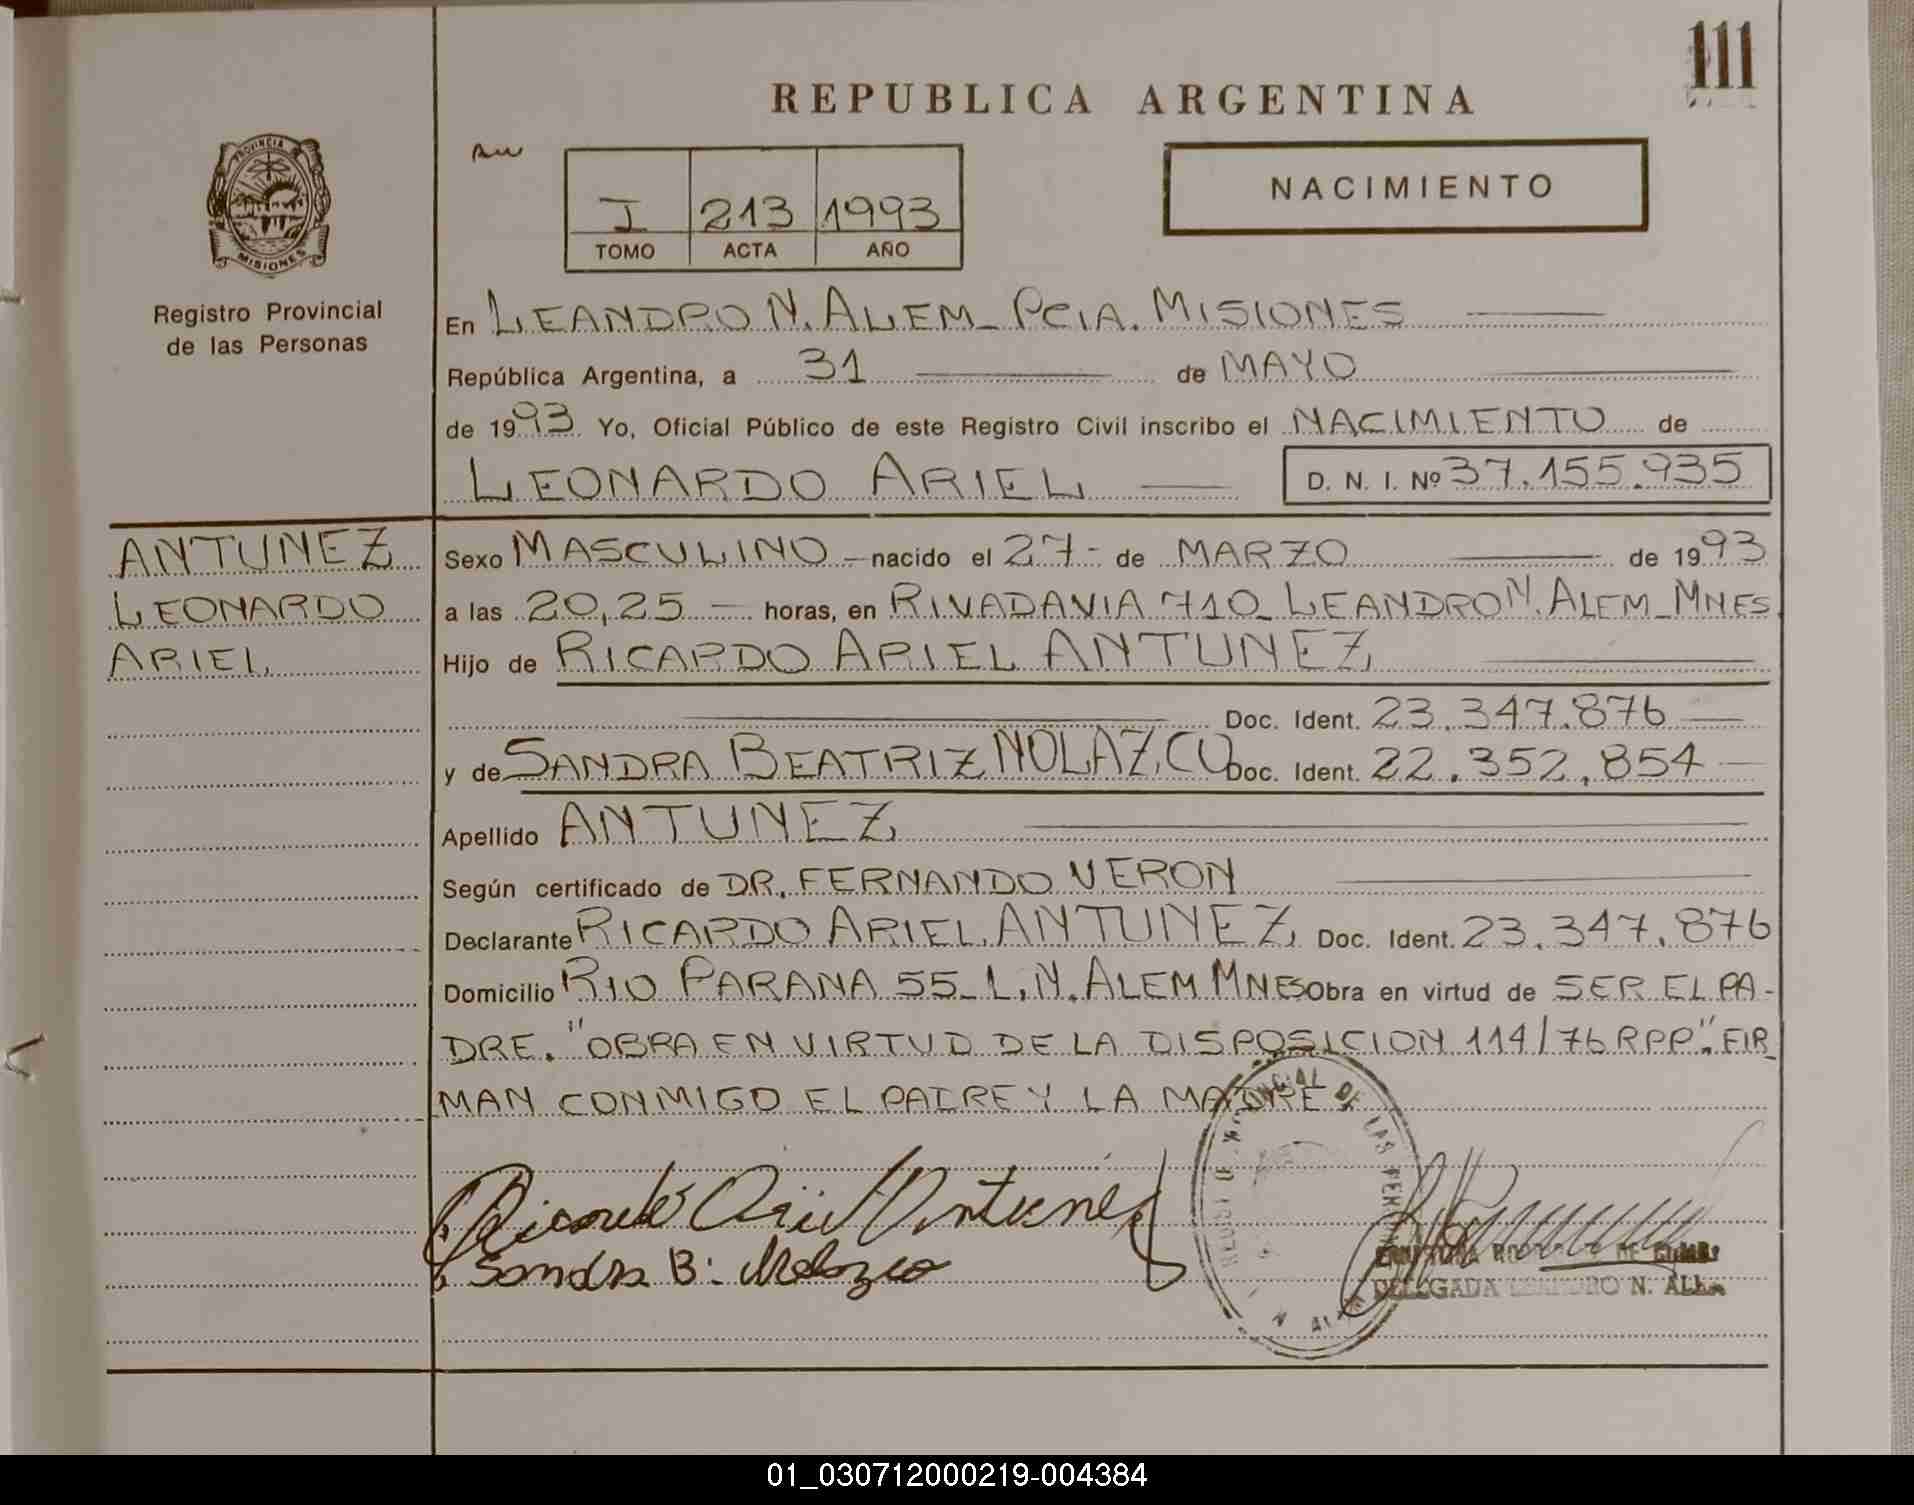 111
REPUBLICA ARGENTINA
PROVINCIA
MISIONES
I 213 1993
TOMO ACTA AÑO
NACIMIENTO
Registro Provincial
de las Personas
En LEANDRO N. ALEM - PCIA. MISIONES
República Argentina, a 31 de MAYO
de 1993 Yo, Oficial Público de este Registro Civil inscribo el NACIMIENTO de
LEONARDO ARIEL D. N. I. Nº 37.155.935
ANTUNEZ
LEONARDO
ARIEL
Sexo MASCULINO - nacido el 27 - de MARZO de 1993
a las 20,25 - horas, en RIVADAVIA 710 - LEANDRO N. ALEM - MNES.
Hijo de RICARDO ARIEL ANTUNEZ
Doc. Ident. 23.347.876
y de SANDRA BEATRIZ NOLAZCO Doc. Ident. 22.352.854
Apellido ANTUNEZ
Según certificado de DR. FERNANDO VERON
Declarante RICARDO ARIEL ANTUNEZ Doc. Ident. 23.347.876
Domicilio RIO PARANA 55 - L. N. ALEM MNES Obra en virtud de SER EL PA-
DRE. "OBRA EN VIRTUD DE LA DISPOSICION 114/76 RPP". FIR-
MAN CONMIGO EL PADRE Y LA MADRE
Ricardo Ariel Antunez
Sandra B. Nolazco
DELEGADA LEANDRO N. ALEM
01_030712000219-004384